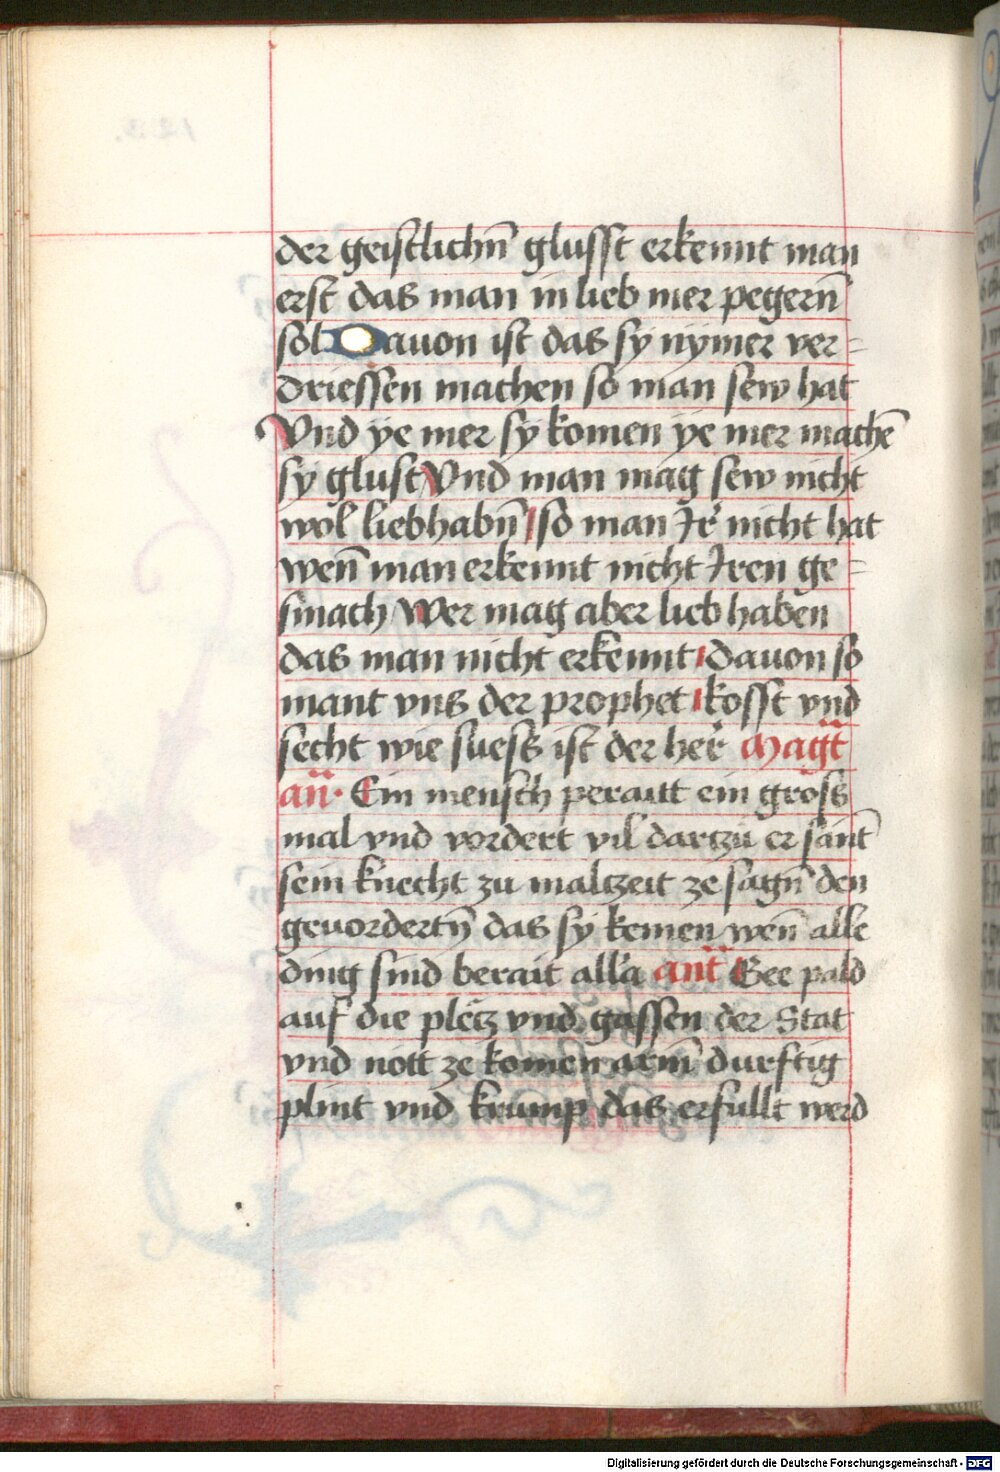 der geistlichn̄ glusst erkennt man
erst das man in lieb mer pegern̄
sol Dauon ist das sy nymer ver-
driessen machen so man sew hat
Vnd ye mer sy komen ye mer machē
sy glust Vnd man mag sew nicht
wol liebhabn̄ so man Ir nicht hat
wen̄ man erkennt nicht Iren ge-
smach Wer mag aber lieb haben
das man nicht erkennt dauon so
mant vns der prophet kosst vnd
secht wie suess ist der her Magt
an̄. Ein mensch peraitt ein gross
mal vnd vordert vil dartzu er sant
sein knecht zu maltzeit ze sagn̄ den
geuordertn̄ das sy kemen wen̄ alle
ding sind berait alla ant Gee pald
auf die pletz vnd gassen der Stat
vnd nott ze komen arm̄ durftig
plint vnd krump das erfullt werd
Digitalisierung gefördert durch die Deutsche Forschungsgemeinschaft - DFG